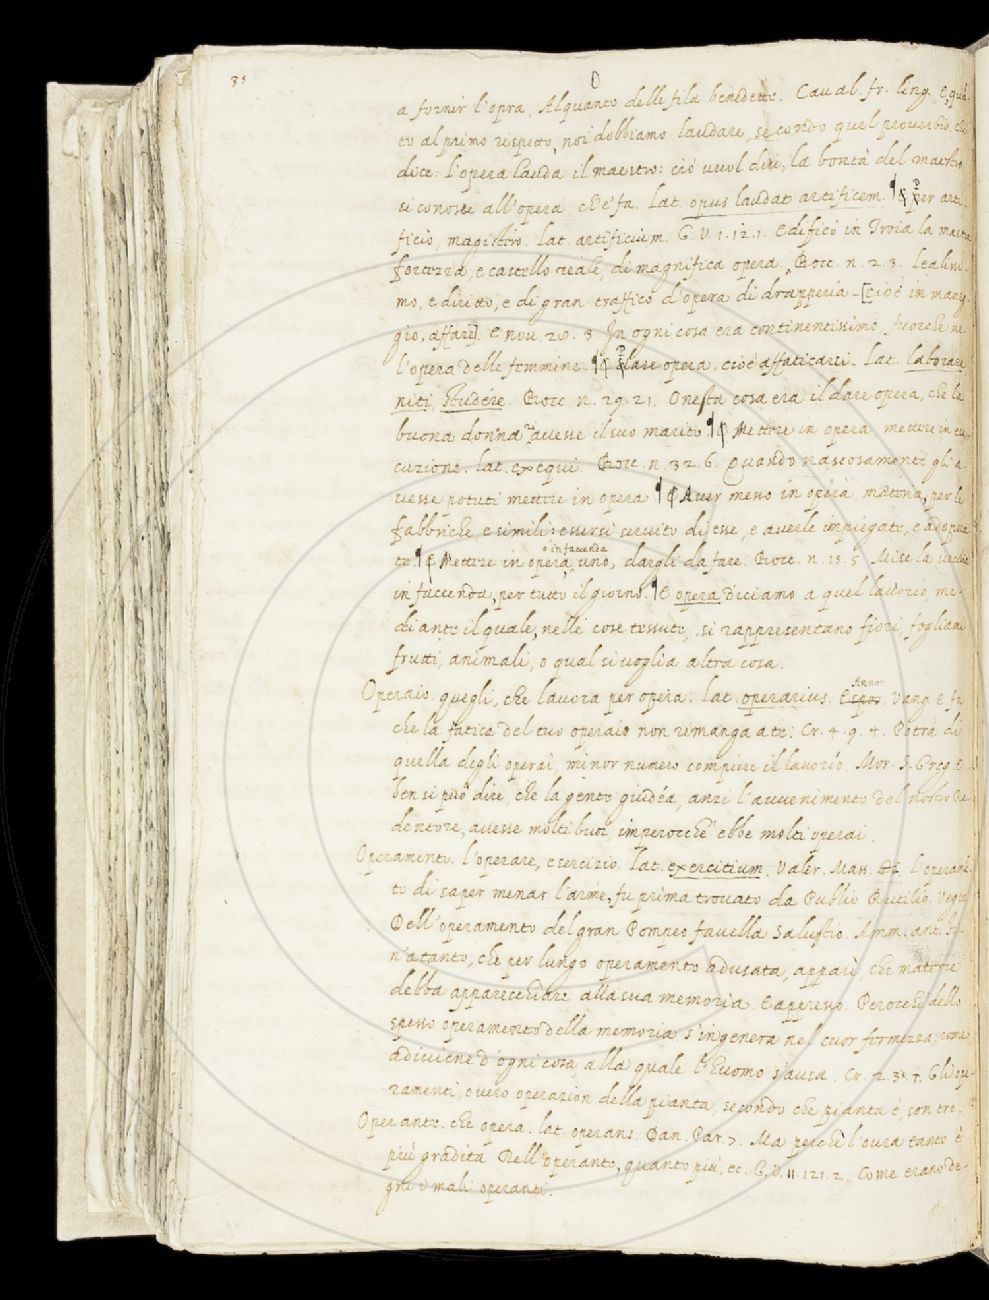 35
O
a fornir l'opra, Alquanto delle fila benedette. Caual. fr. ling. E, quan
to al primo rispetto, noi dobbiamo laudare, secondo quel prouerbio, che
dice: l'opera lauda il maestro: ciò vuol dire, la bontà del maestro
si conosce all'opera, ch'e' fa. Lat. opus laudat artificem. ¶ per arti
ficio, magistero. Lat. artificium. G. V. 1. 12. 1. Edificò in Troia la mastra
fortezza, e castello reale, di magnifica opera. Bocc. n. 2. 3. lealissi
mo, e diritto, e di gran traffico d'opera di drapperia. [cioè in maneg
gio, affare]. E nou. 20. 3. In ogni cosa era continentissimo, fuorchè ne
l'opera delle femmine. ¶ Dare opera, cioè affaticarsi. Lat. laborare
niti, studere. Bocc. n. 29. 21. Onesta cosa era il dare opera, che la
buona donna riauesse il suo marito ¶ Mettere in opera mettere in ese
cuzione. lat. exequi. Bocc. n. 32. 6. Quando nascosamenti gli a
uesse potuti mettere in opera ¶ Auer messo in opera matina, per le
fabbriche, e simili: essersi seruito di esse, e auerle impiegate, e adopera
te. ¶ Mettere in opera, o in facenda uno, dargli da fare. Bocc. n. 15. 5. Mise la vecchia
in faccenda, per tutto il giorno. ¶ E opera diciamo a quel lauorio, me-
diante il quale, nelle cose tessute, si rappresentano fiori, fogliami
frutti, animali, o qual si uoglia altra cosa.
Operaio. quegli, che lauora per opera. lat. operarius. Espos. Annot. Vang. E fa
che la fatica del tuo operaio non rimanga a te: Cr. 4. 9. 4. Potrà di
quella degli operai, minor numero compiere il lauorio. Mor. S. Greg. E
ben si può dire, che la gente giudéa, anzi l'auuenimento del nostro Re
dentore, auesse molti buoi, imperocchè ebbe molti operai.
Operamento. l'operare, esercizio. Lat. exercitium. Valer. Mass. L'operamẽ
to di saper menar l'arme, fu prima trouato da Publio Rutilio. Vegez.
Dell'operamento del gran Pompeo fauella Salustio. Amm. ant.
n'a tanto, che per lungo operamento adusata, apparì, che materie
debba apparecchiare alla sua memoria. E appresso. Perocchè dello
spesso operamento della memoria s'ingenera nel cuor fermezza; come
adiuiene d'ogni cosa, alla quale l'huomo s'ausa. Cr. 2. Gli ope-
ramenti, ouero operazion della pianta, secondo che pianta è, son tre.
Operante. che opera. lat. operans. Dan. Par. 7. Ma perchè l'oura tanto è
più gradita Dell'operante, quanto più, ec. G. V. 11. 121. 2. Come erano de-
gni i mali operanti.